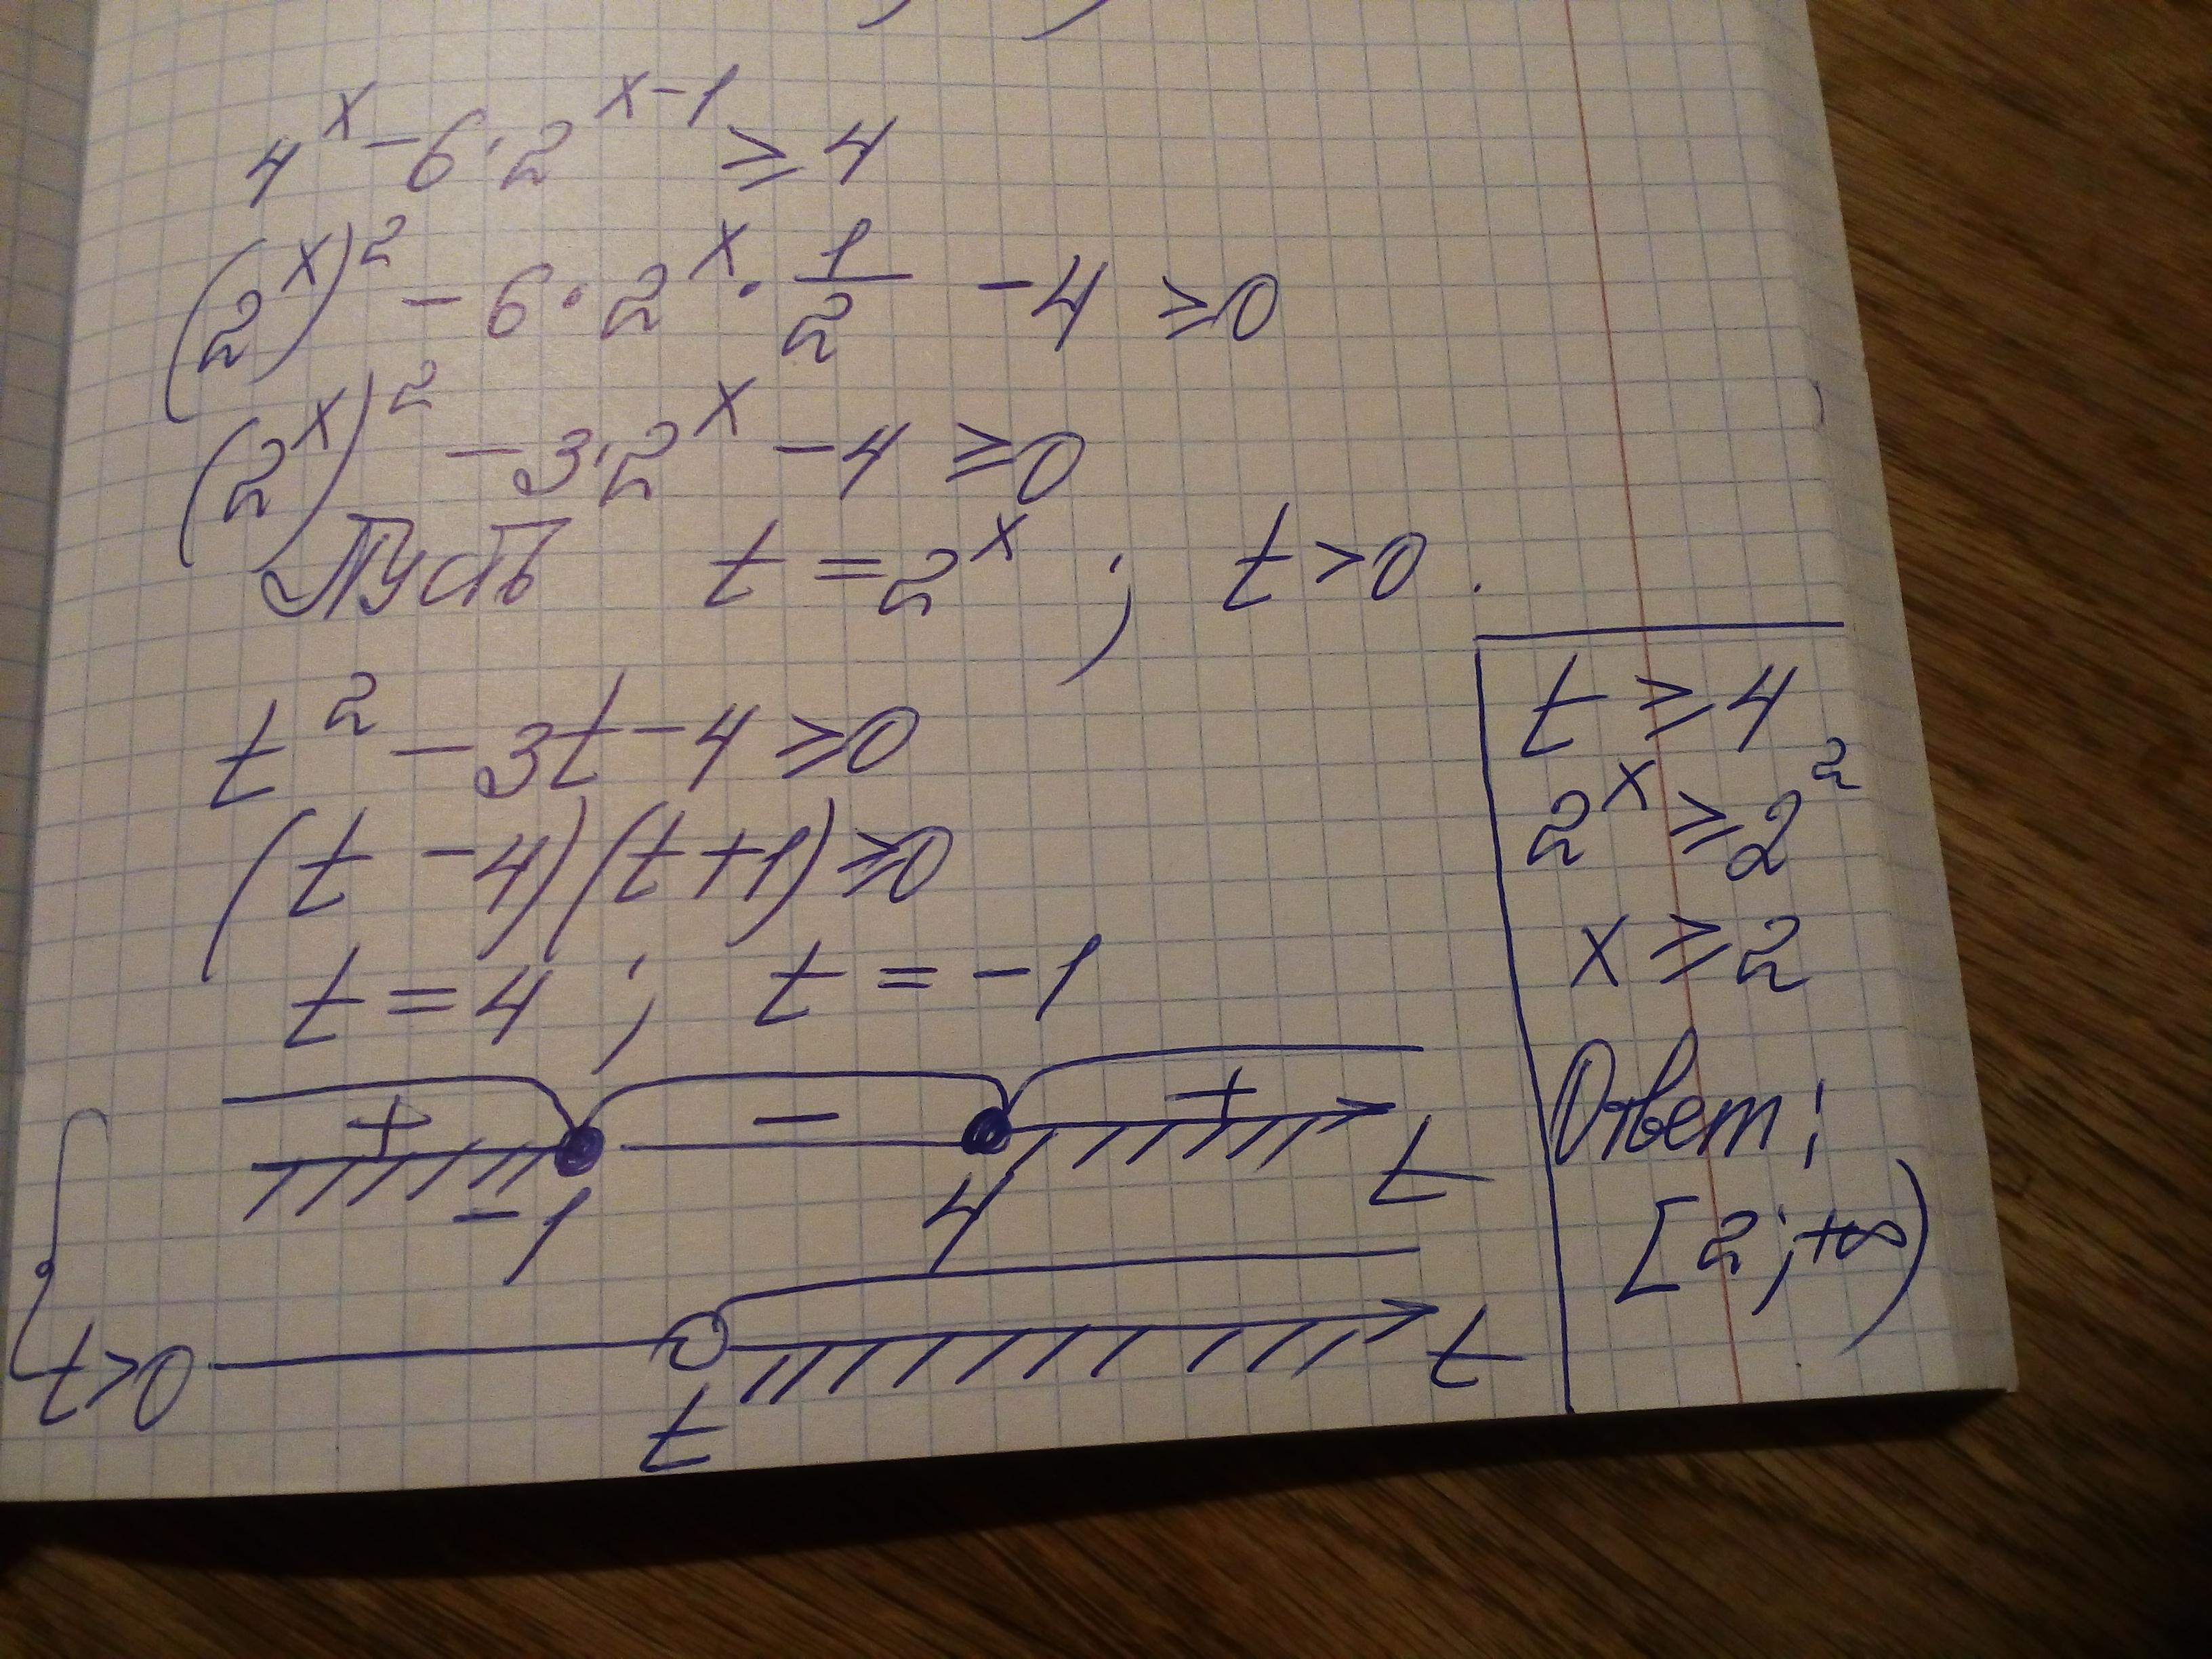 4^x - 6·2^(x-1) ≥ 4
(2^x)^2 - 6·2^x·1/2 - 4 ≥ 0
(2^x)^2 - 3·2^x - 4 ≥ 0
Пусть t = 2^x ; t > 0.
t^2 - 3t - 4 ≥ 0
(t - 4)(t + 1) ≥ 0
t = 4 ; t = -1
+ - +
-1 4 t
t > 0 t
t
t ≥ 4
2^x ≥ 2^2
x ≥ 2
Ответ:
[2;+∞)